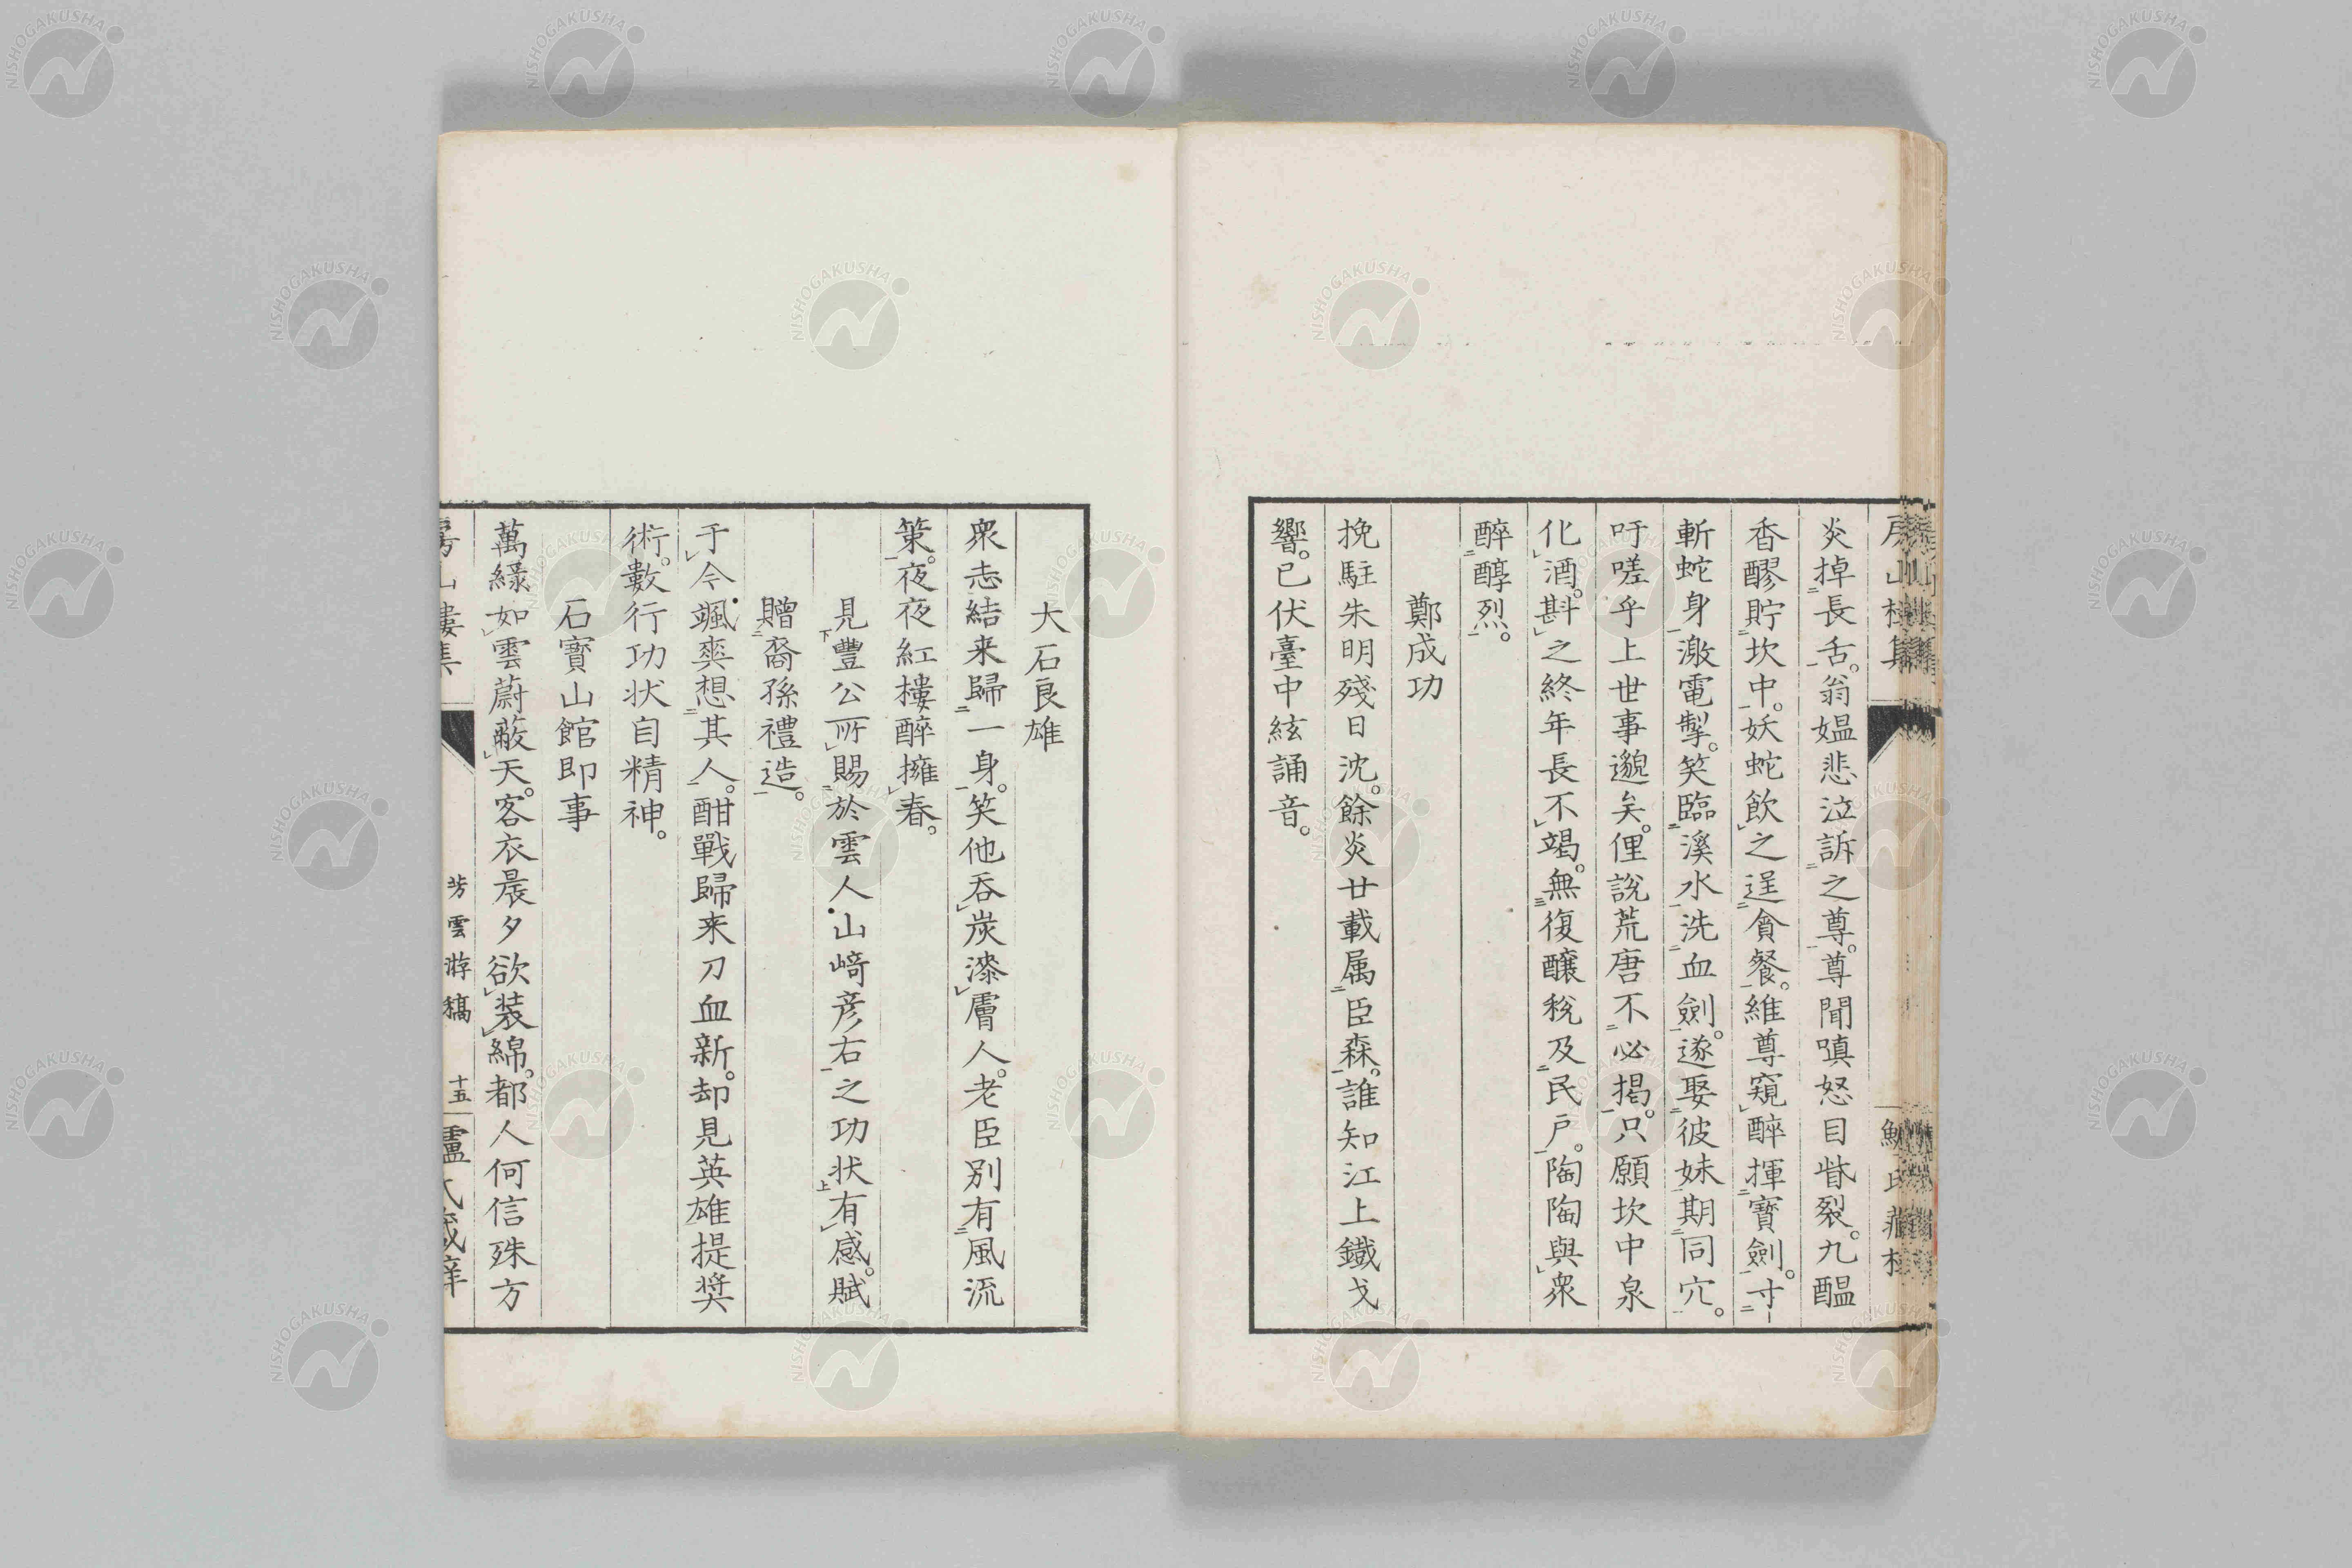 炎掉長舌。翁媼悲泣訴之尊。尊聞嗔怒目眥裂。九醞
香醪貯坎中。妖蛇飲之逞貪餐。維尊窺醉揮寶劍。寸
斬蛇身激電掣。笑臨溪水洗血劍。遂娶彼妹期同穴。
吁嗟乎上世事邈矣。俚說荒唐不必揭。只願坎中泉
化酒。斟之終年長不竭。無復釀稅及民戶。陶陶與衆
醉醇烈。
鄭成功
挽駐朱明殘日沈。餘炎廿載属臣森。誰知江上鐵戈
響。已伏臺中絃誦音。
大石良雄
衆志結来歸一身。笑他吞炭漆膚人。老臣別有風流
策。夜夜紅樓醉擁春。
見豐公所賜於雲人山﨑彦右之功状有感。賦
贈裔孫禮造。
于今颯爽想其人。酣戰歸来刀血新。却見英雄提奨
術。數行功状自精神。
石寶山館即事
萬綠如雲蔚蔽天。客衣晨夕欲装綿。都人何信殊方
芳雲游稿 十五
NISHOGAKUSHA